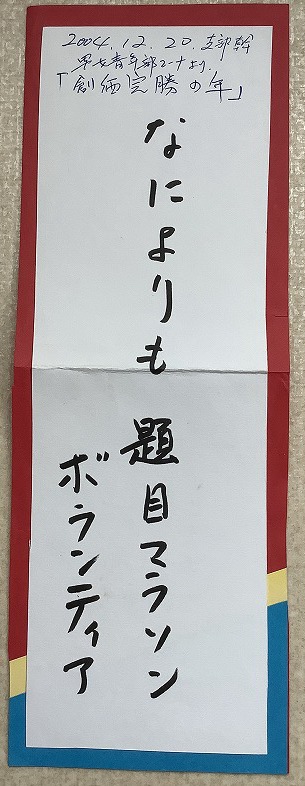 2004.12.20.支部幹
男女青年部コーナより.
「創価完勝の年」
なによりも 題目マラソン
ボランティア